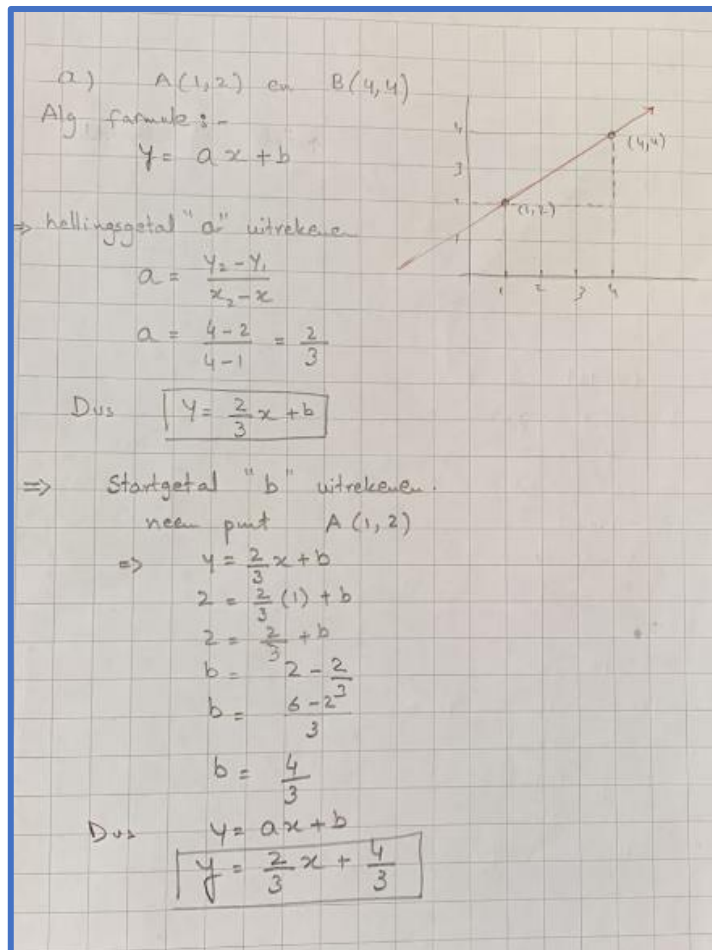 a) A(1,2) en B(4,4)
Alg. formule :-
y = ax + b
⇒ hellingsgetal "a" uitrekenen
a = (y₂ - y₁) / (x₂ - x)
a = (4 - 2) / (4 - 1) = 2/3
Dus y = 2/3 x + b
⇒ Startgetal "b" uitrekenen.
neem punt A(1,2)
⇒ y = 2/3 x + b
2 = 2/3 (1) + b
2 = 2/3 + b
b = 2 - 2/3
b = (6 - 2) / 3
b = 4/3
Dus y = ax + b
y = 2/3 x + 4/3
4
(4,4)
3
2
(1,2)
1
1 2 3 4